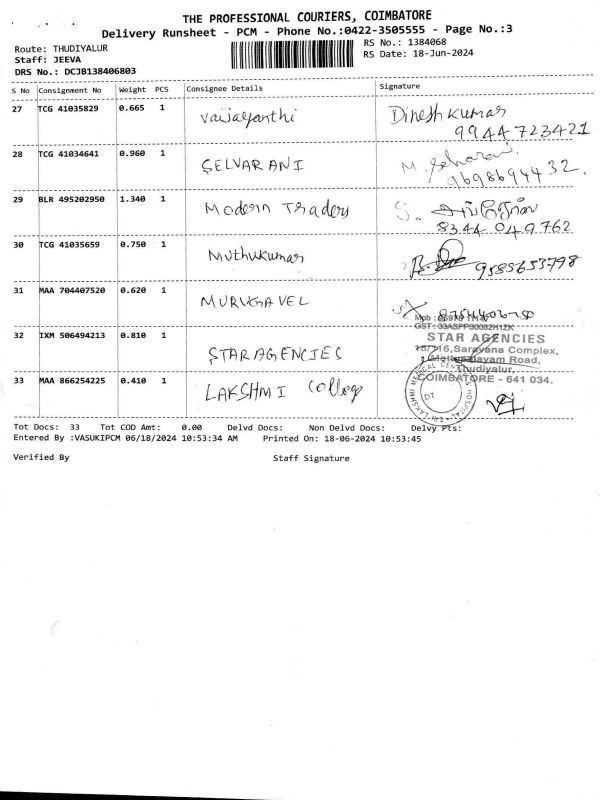 THE PROFESSIONAL COURIERS, COIMBATORE
Delivery Runsheet - PCM - Phone No.:0422-3505555 - Page No.:3
Route: THUDIYALUR
RS No.: 1384068
Staff: JEEVA
RS Date: 18-Jun-2024
DRS No.: DCJB138406803
S No Consignment No Weight PCS Consignee Details Signature
27 TCG 41035829 0.665 1 Vaijayanthi Dinesh Kumar
9944723421
28 TCG 41034641 0.960 1 SELVARANI M.
9698694432.
29 BLR 495202950 1.340 1 Modern Traders S.
8344 049 762
30 TCG 41035659 0.750 1 Muthukumar 9585653798
31 MAA 704407520 0.620 1 MURUGAVEL
32 IXM 506494213 0.810 1 STAR AGENCIES
STAR AGENCIES
15/716,Saravana Complex,
Mettupalayam Road,
Thudiyalur,
COIMBATORE - 641 034.
33 MAA 866254225 0.410 1 LAKSHMI College
Tot Docs: 33 Tot COD Amt: 0.00 Delvd Docs: Non Delvd Docs: Delvy Pts:
Entered By :VASUKIPCM 06/18/2024 10:53:34 AM Printed On: 18-06-2024 10:53:45
Verified By Staff Signature